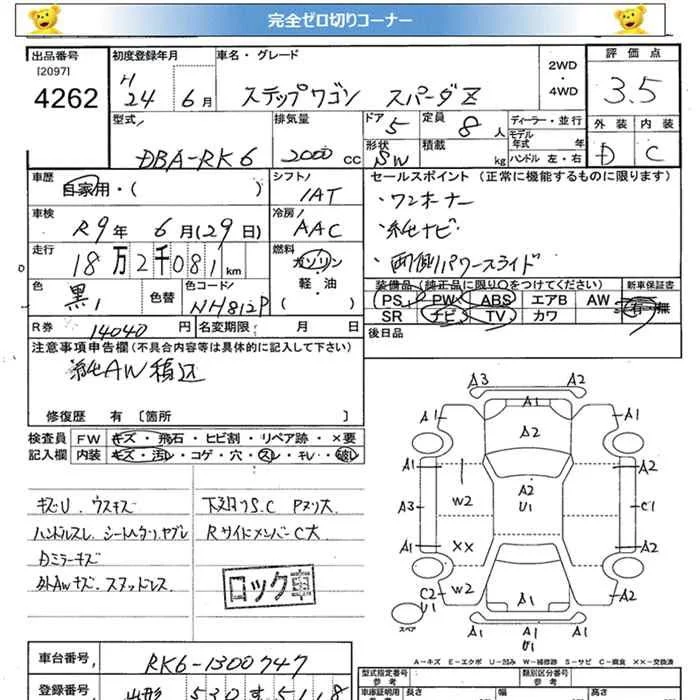 完全ゼロ切りコーナー
出品番号 初度登録年月 車名・グレード 2WD・4WD 評価点
[2097]
4262 H24 6月 ステップワゴン スパーダZ 3.5
型式 排気量 ドア 定員 ディーラー・並行 外装 内装
5 8人 モデル年式 年
DBA-RK6 2000cc 形状 SW 積載 kg ハンドル 左・右 D C
車歴 シフト セールスポイント (正常に機能するものに限ります)
自家用・( ) IAT ・ワンオーナー
車検 冷房 ・純ナビ
R9年 6月(29日) AAC ・両側パワースライド
走行 燃料
18万2千081km ガソリン・軽・油( )
色 色替 色コード 装備品(純正品に限り○をつけてください) 新車保証書
黒 NH812P PS PW ABS エアB AW 有・無
SR ナビ TV カワ
R券 14040円 名変期限 月 日 後日品
注意事項申告欄(不具合内容等は具体的に記入して下さい)
純AW積込
修復歴 有 [箇所 ]
検査員 FW キズ・飛石・ヒビ割・リペア跡・×要
記入欄 内装 キズ・汚レ・コゲ・穴・スレ・キレ・破レ
キズU ウスキズ 下廻りS.C Pヌリ大
ハンドルスレ シートヘタリ ヤブレ RサイドメンバーC大
Dミラーキズ
外AWキズ スタッドレス ロック
A3 A2
A1 A1 A1
A2
A1 A2
W2 A2 U1
A3 C1
A1 XX A1
W2
C2 U1 A1 A2
スペア A1 U1
A-キズ E-エクボ U-凹み W-補修跡 S-サビ C-腐食 XX-交換済
車台番号 RK6-1300747 型式指定番号 参考 類別区分番号 参考
登録番号 山形 530 す 5118 車庫証明用 参考 長さ 幅 高さ